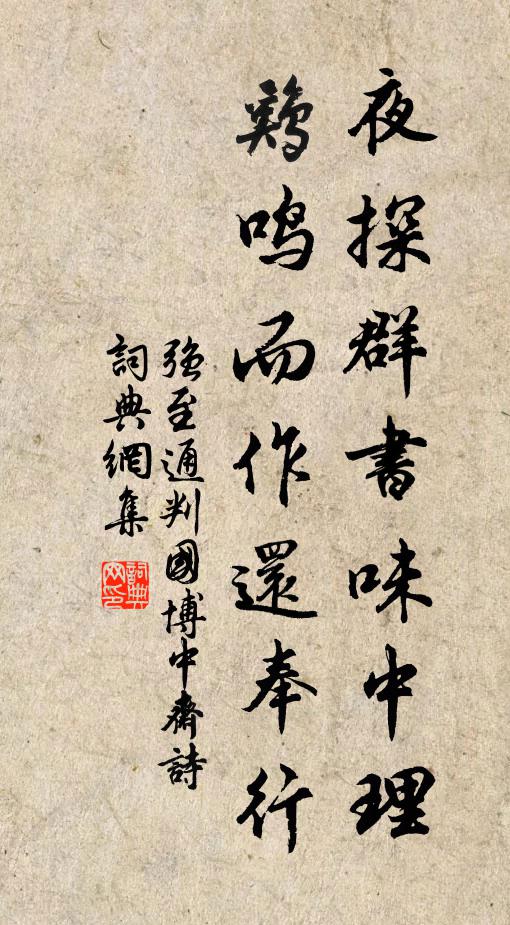 夜探群書味中理
鷄鳴而作還奉行
强至通判國博中齋詩
詞典網集
詞典
网印